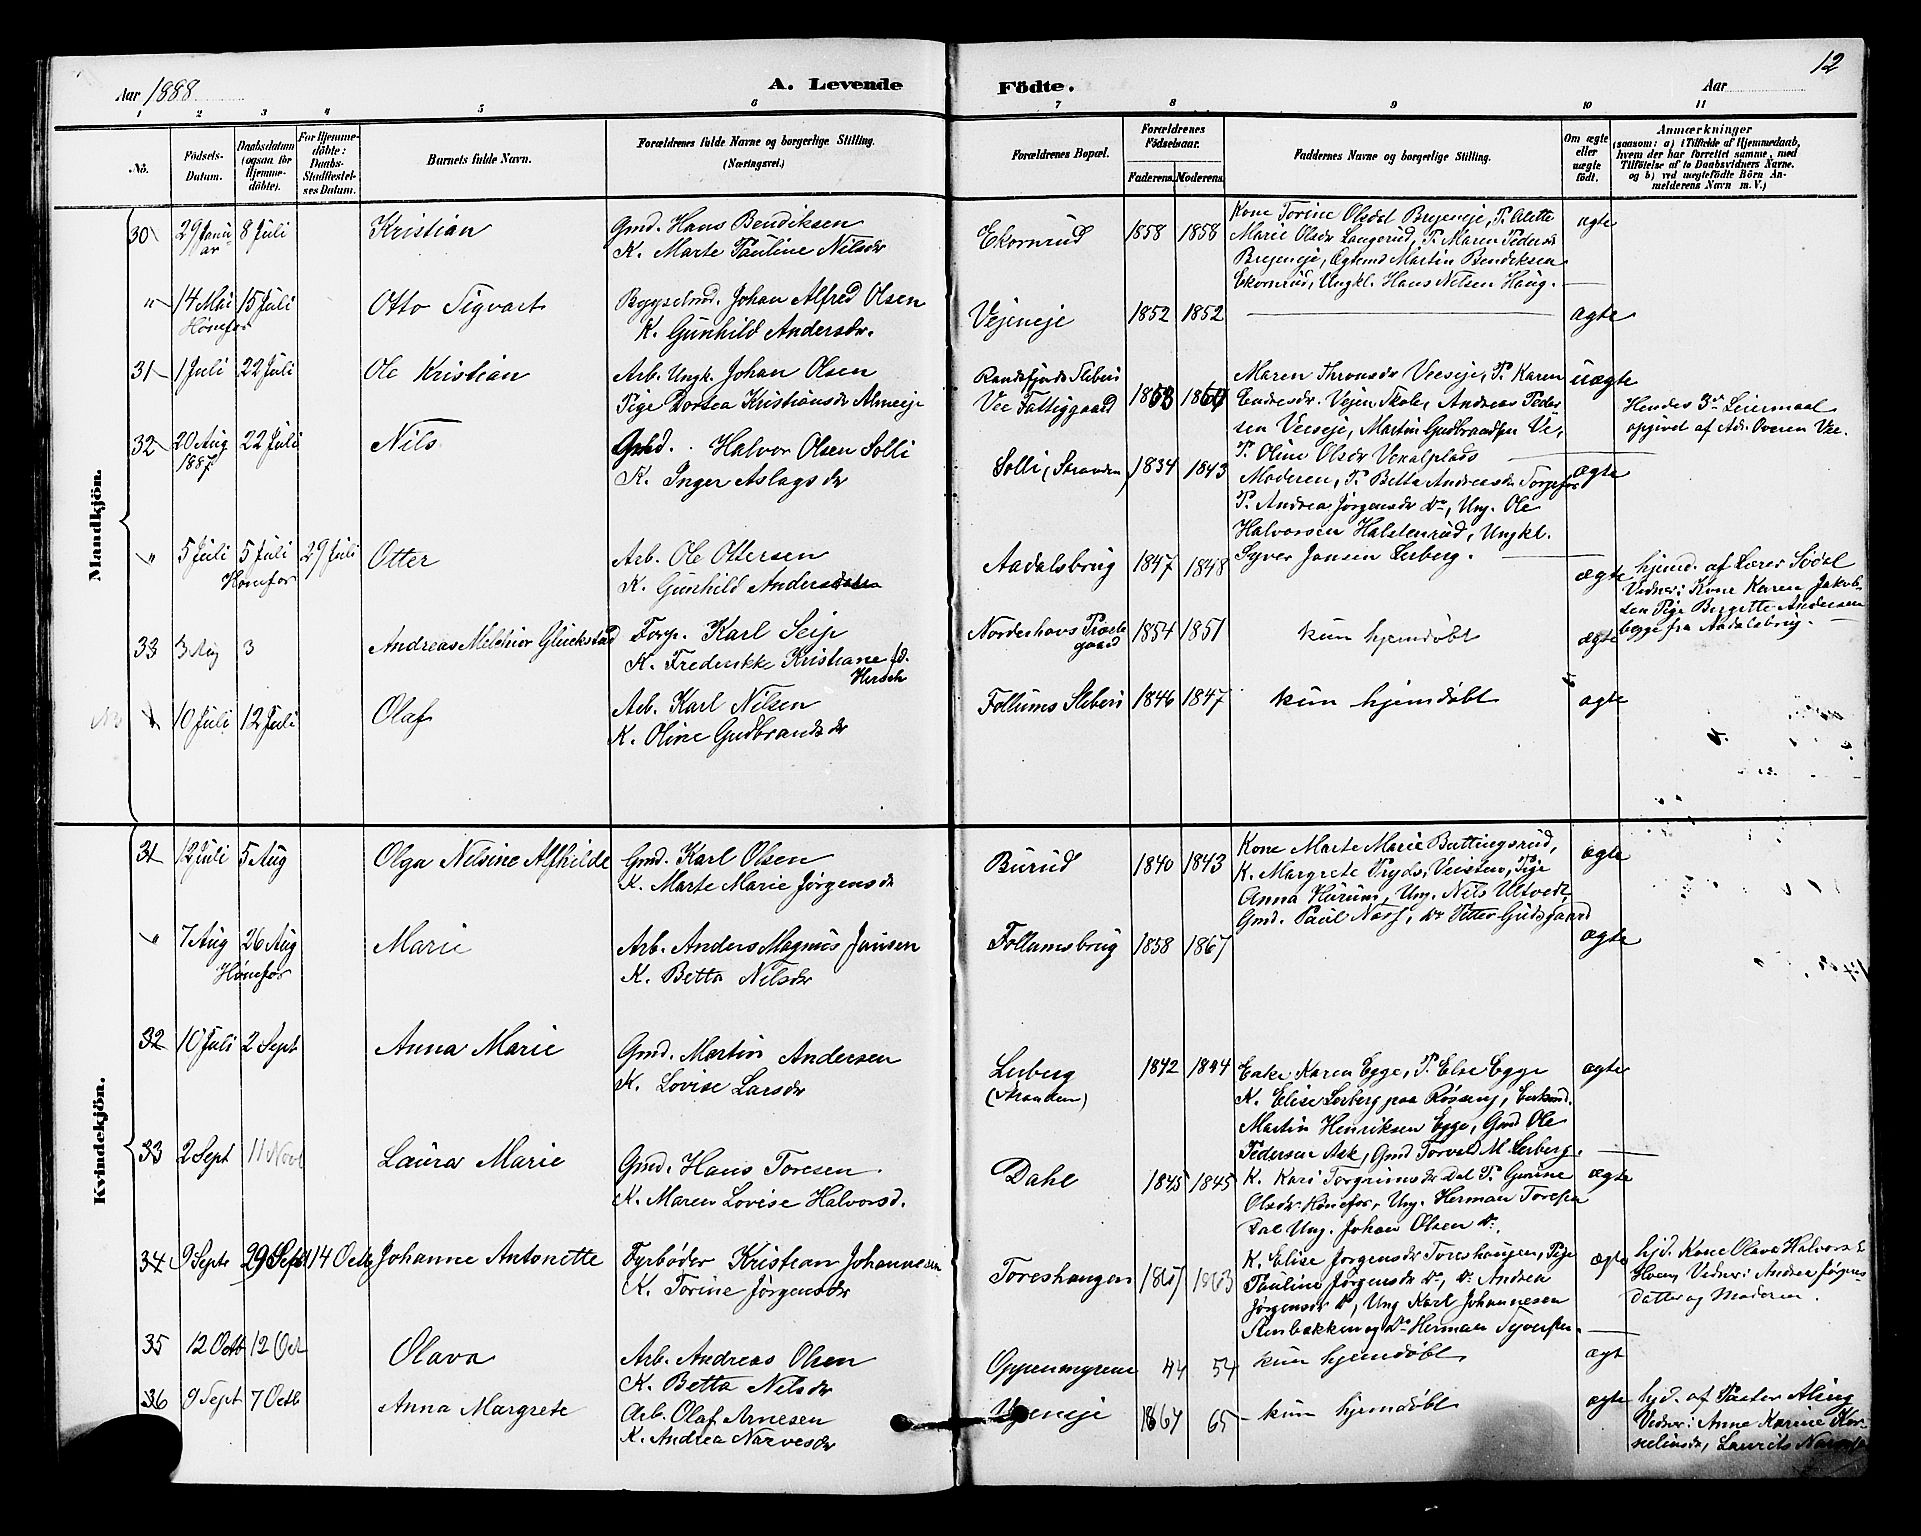 12
Aar 1888. A. Levende Födte. Aar
1 2 3 4 5 6 7 8 9 10 11
No.
Födsels-
Datum.
Daabsdatum
(ogsaa for
Hjemme-
döbte).
For Hjemme-
döbte:
Daabs-
Stadfæstel-
ses Datum.
Barnets fulde Navn.
Forældrenes fulde Navne og borgerlige Stilling.
(Næringsvei.)
Forældrenes Bopæl.
Forældrenes
Födselsaar.
Faderens. Moderens.
Faddernes Navne og borgerlige Stilling.
Om ægte
eller
uægte
födt.
Anmærkninger
(saasom: a) i Tilfælde af Hjemmedaab,
hvem der har forrettet samme, med
Tilföielse af to Daabsvidners Navne.
og b) ved uegtefödte Börn An-
melderens Navn m. V.)
Mandkjön.
30 29 Janu- 8 Juli Kristian Gmd. Hans Bendiksen
ar K. Marte Pauline Nilsdr
Ekornrud 1858 1858 Kone Torine Olsdat Brejeneje, P. Alette ægte
Marie Olsdr Langerud, P. Maren Pedersdr
Brejeneje, Egtemd Martin Bendiksen
Ekornrud, Ungkl. Hans Nilsen Haug.
" 14 Mai 15 Juli Otto Sigvart Bygselmd. Johan Alfred Olsen
Hönefos K. Gunhild Andersdr.
Vejeneje 1852 1852 ægte
31 1 Juli 22 Juli Ole Kristian Arb. Ungk. Johan Olsen
Pige Dortea Kristiansdr Almeje
Randsfjords Sliberi
Vee Fattiggaard 1853 1860 Maren Thronsdr Veeseje, P. Karen uægte
Endresdr. Vejen Skole, Andreas Peder-
sen Veeseje, Martin Gudbrandsen Ve,
P. Oline Olsdr
Hendes 3die Leiermaal
opgivet af Adr. Overen Vee.
32 20 Aug 22 Juli Nils Gmd. Halvor Olsen Solli
1887 K. Inger Aslagsdr
Solli (Stranden) 1834 1843 Moderen, P. Betta Andreasdr Torpefos ægte
P. Andrea Jørgensdr do, Ung. Ole
Halvorsen Halstenrud, Ungkl.
Syver Jansen Lerberg.
" 5 Juli 5 Juli 29 Juli Otter Arb. Ole Ottersen
Hønefos K. Gunhild Andersdatter
Aadalsbrug 1847 1848 ægte
hjemd. af Lærer Sødal
Vidner: Kone Karen Jakob-
sen Pige Bergette Andersen
begge fra Aadalsbrug.
33 3 Aug 3 Andreas Milchior Glückstad Forp. Karl Seip
K. Frederikke Kristiane fd.
Hersch
Norderhovs Præste
gaard 1854 1851 kun hjemdøbt ægte
10 Juli 12 Juli Olaf Arb. Karl Nilsen
K. Oline Gudbrandsdr
Follums Sliberi 1846 1847 kun hjemdøbt ægte
Kvindekjön.
31 12 Juli 5 Aug Olga Nilsine Alfhilde Gmd. Karl Olsen
K. Marte Marie Jørgensdr
Burud 1840 1843 Kone Marte Marie Buttingsrud, ægte
K. Margrete Pryds, Veisten, Pige
Anna Hurum, Ung. Nils Ultvedt,
Gmd. Paul Næss, do Petter Gudsgaard
" 7 Aug 26 Aug Marie Arb. Anders Magnus Jansen
Hønefos K. Betta Nilsdr
Follumsbrug 1858 1867 ægte
32 10 Juli 2 Sept Anna Marie Gmd. Martin Andersen
K. Lovise Larsdr
Lerberg
(Stranden) 1842 1844 Enke Karen Egge, P. Else Egge ægte
K. Elise Lerberg paa Røseng, Enkemd.
Martin Henriksen Egge, Gmd Ole
Pedersen Ask, Gmd Torvald M. Lerberg.
33 2 Sept 11 Novb Laura Marie Gmd. Hans Toresen
K. Maren Lovise Halvorsd.
Dahl 1845 1845 K. Kari Torgrimsdr Dal P. Gunine ægte
Olsdr Hønefos, Ung. Herman Toresen
Dal Ung. Johan Olsen do.
34 9 Septr 29 Sept 14 Octb Johanne Antonette Fyrbøder Kristian Johannesen
K. Torine Jørgensdr
Toreshaugen 1867 1863 K. Elise Jørgensdr Toreshaugen, Pige ægte
Pauline Jørgensdr do, do Andrea
Jørgensdr do, Ung Karl Johannesen
Stenbakken og do Herman Syversen.
hjd. Kone Olava Halvors
Hven, Vidner: Andrea Jørgens-
datter og Moderen.
35 12 Octb 12 Oct Olava Arb. Andreas Olsen
K. Betta Nilsdr
Oppenmyrene 44 54 kun hjemdøbt ægt
36 9 Sept 7 Octb Anna Margrete Arb. Olaf Arnesen
K. Andrea Narvesdr
Vejeneje 1867 65 kun hjemdøbt ægte
hjd. af Pastor Aling
Vidner: Anne Karine Kor-
nelinsdr, Laurits